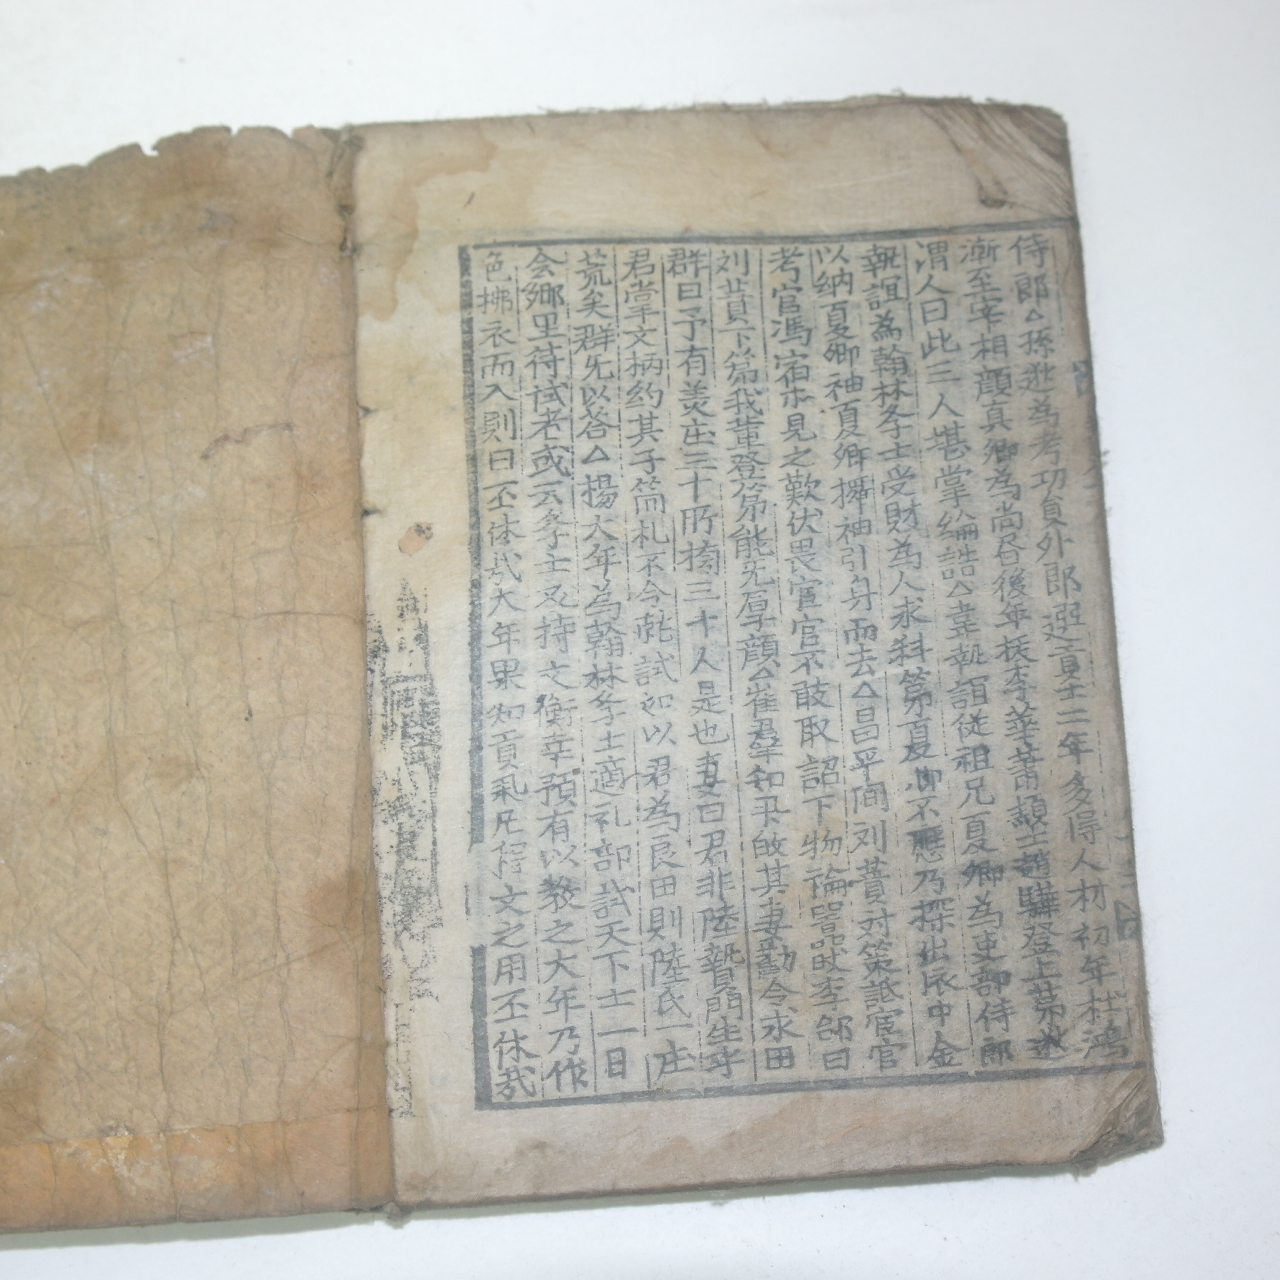 侍郎△孫逖為考功員外郎選貢士二年多得人材初年杜鴻
漸至宰相顔真卿為尚书後年拔李華蕭頴士趙驊登上第逖
謂人曰此三人堪掌綸誥△韋執誼従祖兄夏卿為吏部侍郎
執誼為翰林学士受財為人求科第夏卿不應乃探出怀中金
以納夏卿袖夏卿擺袖引身而去△昌平間刘蕡対策詆宦官
考官馮宿等見之歎伏畏宦官不敢取詔下物論嚣然李郃曰
刘蕡下第我軰登第能无厚顔△崔羣知貢挙其妻勸令求田
群曰予有羙庄三十所榜三十人是也妻曰君非陸贄門生乎
君掌文柄約其子簡礼不令就試如以君為良田則陸氏一庄
荒矣群无以答△楊大年為翰林学士適礼部試天下士一日
会郷里待试者或云学士又持文衡幸預有以教之大年乃作
色拂衣而入則曰丕休哉大年果知貢挙凡得文之用丕休哉